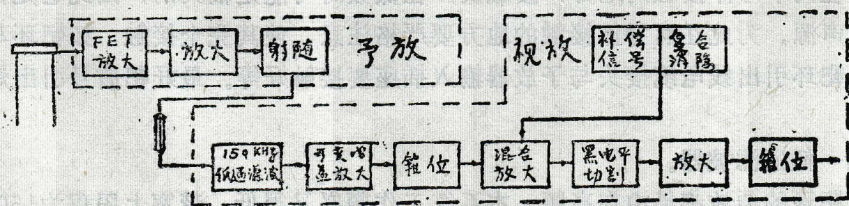 FET
放大
放大
射随
予放
视放
补偿
信号
复合
消隐
150KHz
低通滤波
可变增
益放大
箝位
混合
放大
黑电平
切割
放大
箝位